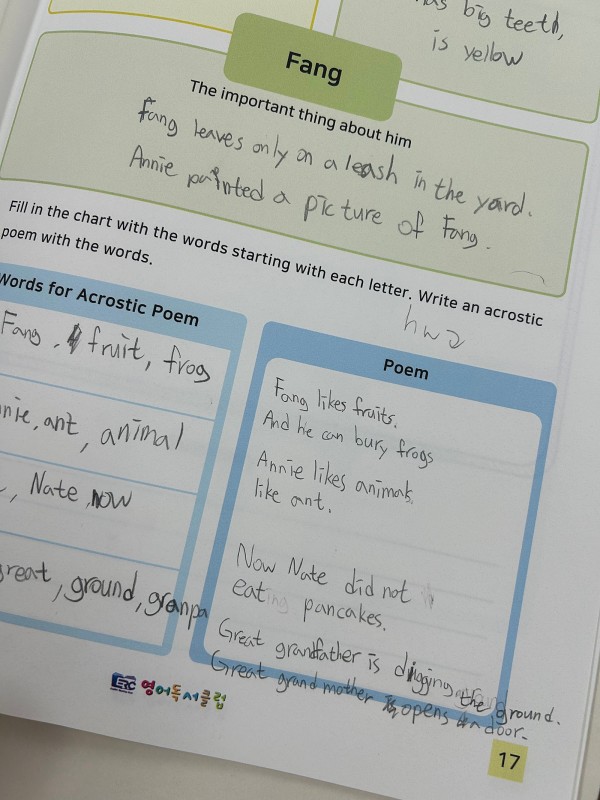 big teeth,
is yellow
Fang
The important thing about him
Fang leaves only on a leash in the yard.
Annie painted a picture of Fang.
Fill in the chart with the words starting with each letter. Write an acrostic
poem with the words.
hw2
Words for Acrostic Poem
Fang, fruit, frog
ant, animal
Nate, now
great, ground, granpa
Poem
Fang likes fruits.
And he can bury frogs
Annie likes animals
like ant.
Now Nate did not
eat pancakes.
Great grandfather is digging the ground.
Great grand mother opens door.
ERC 영어독서클럽
17